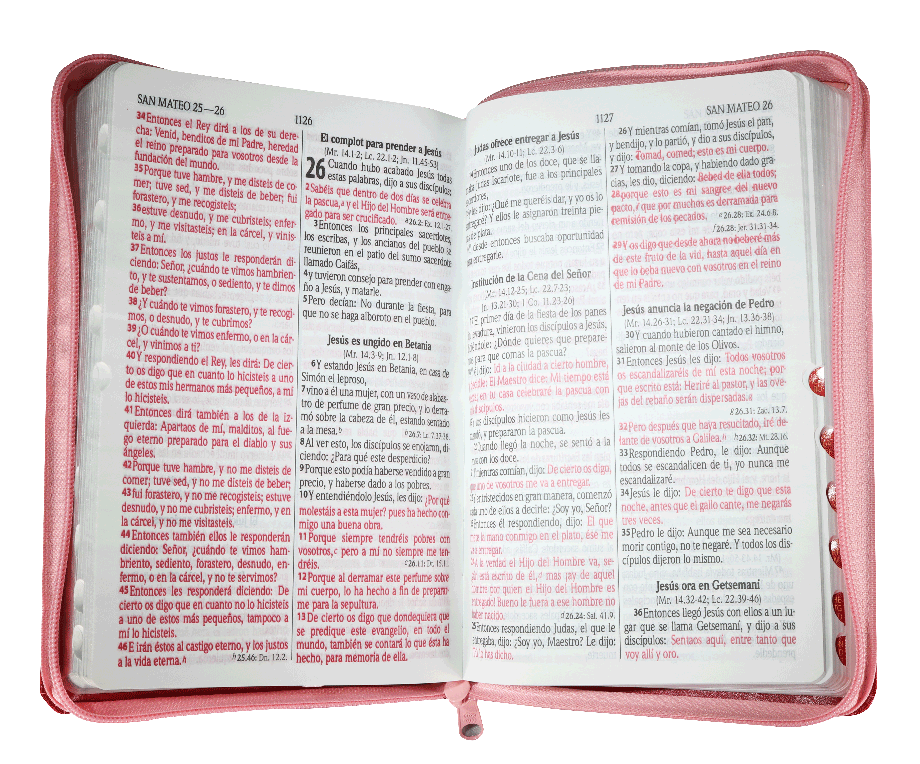 SAN MATEO 25—26
1126
34Entonces el Rey dirá a los de su dere-
cha: Venid, benditos de mi Padre, heredad
el reino preparado para vosotros desde la
fundación del mundo.
35Porque tuve hambre, y me disteis de co-
mer; tuve sed, y me disteis de beber; fui
forastero, y me recogisteis;
36estuve desnudo, y me cubristeis; enfer-
mo, y me visitasteis; en la cárcel, y vinis-
teis a mí.
37Entonces los justos le responderán di-
ciendo: Señor, ¿cuándo te vimos hambrien-
to, y te sustentamos, o sediento, y te dimos
de beber?
38¿Y cuándo te vimos forastero, y te recogi-
mos, o desnudo, y te cubrimos?
39¿O cuándo te vimos enfermo, o en la cár-
cel, y vinimos a ti?
40Y respondiendo el Rey, les dirá: De cier-
to os digo que en cuanto lo hicisteis a uno
de estos mis hermanos más pequeños, a mí
lo hicisteis.
41Entonces dirá también a los de la iz-
quierda: Apartaos de mí, malditos, al fue-
go eterno preparado para el diablo y sus
ángeles.
42Porque tuve hambre, y no me disteis de
comer; tuve sed, y no me disteis de beber;
43fui forastero, y no me recogisteis; estuve
desnudo, y no me cubristeis; enfermo, y en
la cárcel, y no me visitasteis.
44Entonces también ellos le responderán
diciendo: Señor, ¿cuándo te vimos ham-
briento, sediento, forastero, desnudo, en-
fermo, o en la cárcel, y no te servimos?
45Entonces les responderá diciendo: De
cierto os digo que en cuanto no lo hicisteis
a uno de estos más pequeños, tampoco a
mí lo hicisteis.
46E irán éstos al castigo eterno, y los justos
a la vida eterna.h h25.46: Dn. 12.2.
El complot para prender a Jesús
(Mr. 14.1-2; Lc. 22.1-2; Jn. 11.45-53)
26 Cuando hubo acabado Jesús todas
estas palabras, dijo a sus discípulos:
2Sabéis que dentro de dos días se celebra
la pascua,a y el Hijo del Hombre será entre-
gado para ser crucificado. a26.2: Ex. 12.1-27.
3Entonces los principales sacerdotes,
los escribas, y los ancianos del pueblo se
reunieron en el patio del sumo sacerdote
llamado Caifás,
4y tuvieron consejo para prender con enga-
ño a Jesús, y matarle.
5Pero decían: No durante la fiesta, para
que no se haga alboroto en el pueblo.
Jesús es ungido en Betania
(Mr. 14.3-9; Jn. 12.1-8)
6Y estando Jesús en Betania, en casa de
Simón el leproso,
7vino a él una mujer, con un vaso de alabas-
tro de perfume de gran precio, y lo derra-
mó sobre la cabeza de él, estando sentado
a la mesa.b b26.7: Lc. 7.37-38.
8Al ver esto, los discípulos se enojaron, di-
ciendo: ¿Para qué este desperdicio?
9Porque esto podía haberse vendido a gran
precio, y haberse dado a los pobres.
10Y entendiéndolo Jesús, les dijo: ¿Por qué
molestáis a esta mujer? pues ha hecho con-
migo una buena obra.
11Porque siempre tendréis pobres con
vosotros,c pero a mí no siempre me ten-
dréis. c26.11: Dt. 15.11.
12Porque al derramar este perfume sobre
mi cuerpo, lo ha hecho a fin de preparar-
me para la sepultura.
13De cierto os digo que dondequiera que
se predique este evangelio, en todo el
mundo, también se contará lo que ésta ha
hecho, para memoria de ella.
1127
SAN MATEO 26
Judas ofrece entregar a Jesús
(Mr. 14.10-11; Lc. 22.3-6)
entonces uno de los doce, que se lla-
Judas Iscariote, fue a los principales
dijo: ¿Qué me queréis dar, y yo os lo
entregaré? Y ellos le asignaron treinta pie-
de plata.
desde entonces buscaba oportunidad
entregarle.
Institución de la Cena del Señor
(Mr. 14.12-25; Lc. 22.7-23;
Jn. 13.21-30; 1 Co. 11.23-26)
primer día de la fiesta de los panes
levadura, vinieron los discípulos a Jesús,
¿Dónde quieres que prepare-
para que comas la pascua?
dijo: Id a la ciudad a cierto hombre,
El Maestro dice: Mi tiempo está
en tu casa celebraré la pascua con
discípulos.
los discípulos hicieron como Jesús les
y prepararon la pascua.
llegó la noche, se sentó a la
con los doce.
mientras comían, dijo: De cierto os digo,
uno de vosotros me va a entregar.
entristecidos en gran manera, comenzó
uno de ellos a decirle: ¿Soy yo, Señor?
Entonces él respondiendo, dijo: El que
la mano conmigo en el plato, ése me
entregar.
la verdad el Hijo del Hombre va, se-
está escrito de él,d mas ¡ay de aquel
por quien el Hijo del Hombre es
entregado! Bueno le fuera a ese hombre no
nacido. d26.24: Sal. 41.9.
25Entonces respondiendo Judas, el que le
entregaba, dijo: ¿Soy yo, Maestro? Le dijo:
has dicho.
26Y mientras comían, tomó Jesús el pan,
y bendijo, y lo partió, y dio a sus discípulos,
y dijo: Tomad, comed; esto es mi cuerpo.
27Y tomando la copa, y habiendo dado gra-
cias, les dio, diciendo: Bebed de ella todos;
28porque esto es mi sangree del nuevo
pacto,f que por muchos es derramada para
remisión de los pecados. e26.28: Ex. 24.6-8.
f26.28: Jer. 31.31-34.
29Y os digo que desde ahora no beberé más
de este fruto de la vid, hasta aquel día en
que lo beba nuevo con vosotros en el reino
de mi Padre.
Jesús anuncia la negación de Pedro
(Mr. 14.26-31; Lc. 22.31-34; Jn. 13.36-38)
30Y cuando hubieron cantado el himno,
salieron al monte de los Olivos.
31Entonces Jesús les dijo: Todos vosotros
os escandalizaréis de mí esta noche; por-
que escrito está: Heriré al pastor, y las ove-
jas del rebaño serán dispersadas.g
g26.31: Zac. 13.7.
32Pero después que haya resucitado, iré de-
lante de vosotros a Galilea.h h26.32: Mt. 28.16.
33Respondiendo Pedro, le dijo: Aunque
todos se escandalicen de ti, yo nunca me
escandalizaré.
34Jesús le dijo: De cierto te digo que esta
noche, antes que el gallo cante, me negarás
tres veces.
35Pedro le dijo: Aunque me sea necesario
morir contigo, no te negaré. Y todos los dis-
cípulos dijeron lo mismo.
Jesús ora en Getsemaní
(Mr. 14.32-42; Lc. 22.39-46)
36Entonces llegó Jesús con ellos a un lu-
gar que se llama Getsemaní, y dijo a sus
discípulos: Sentaos aquí, entre tanto que
voy allí y oro.